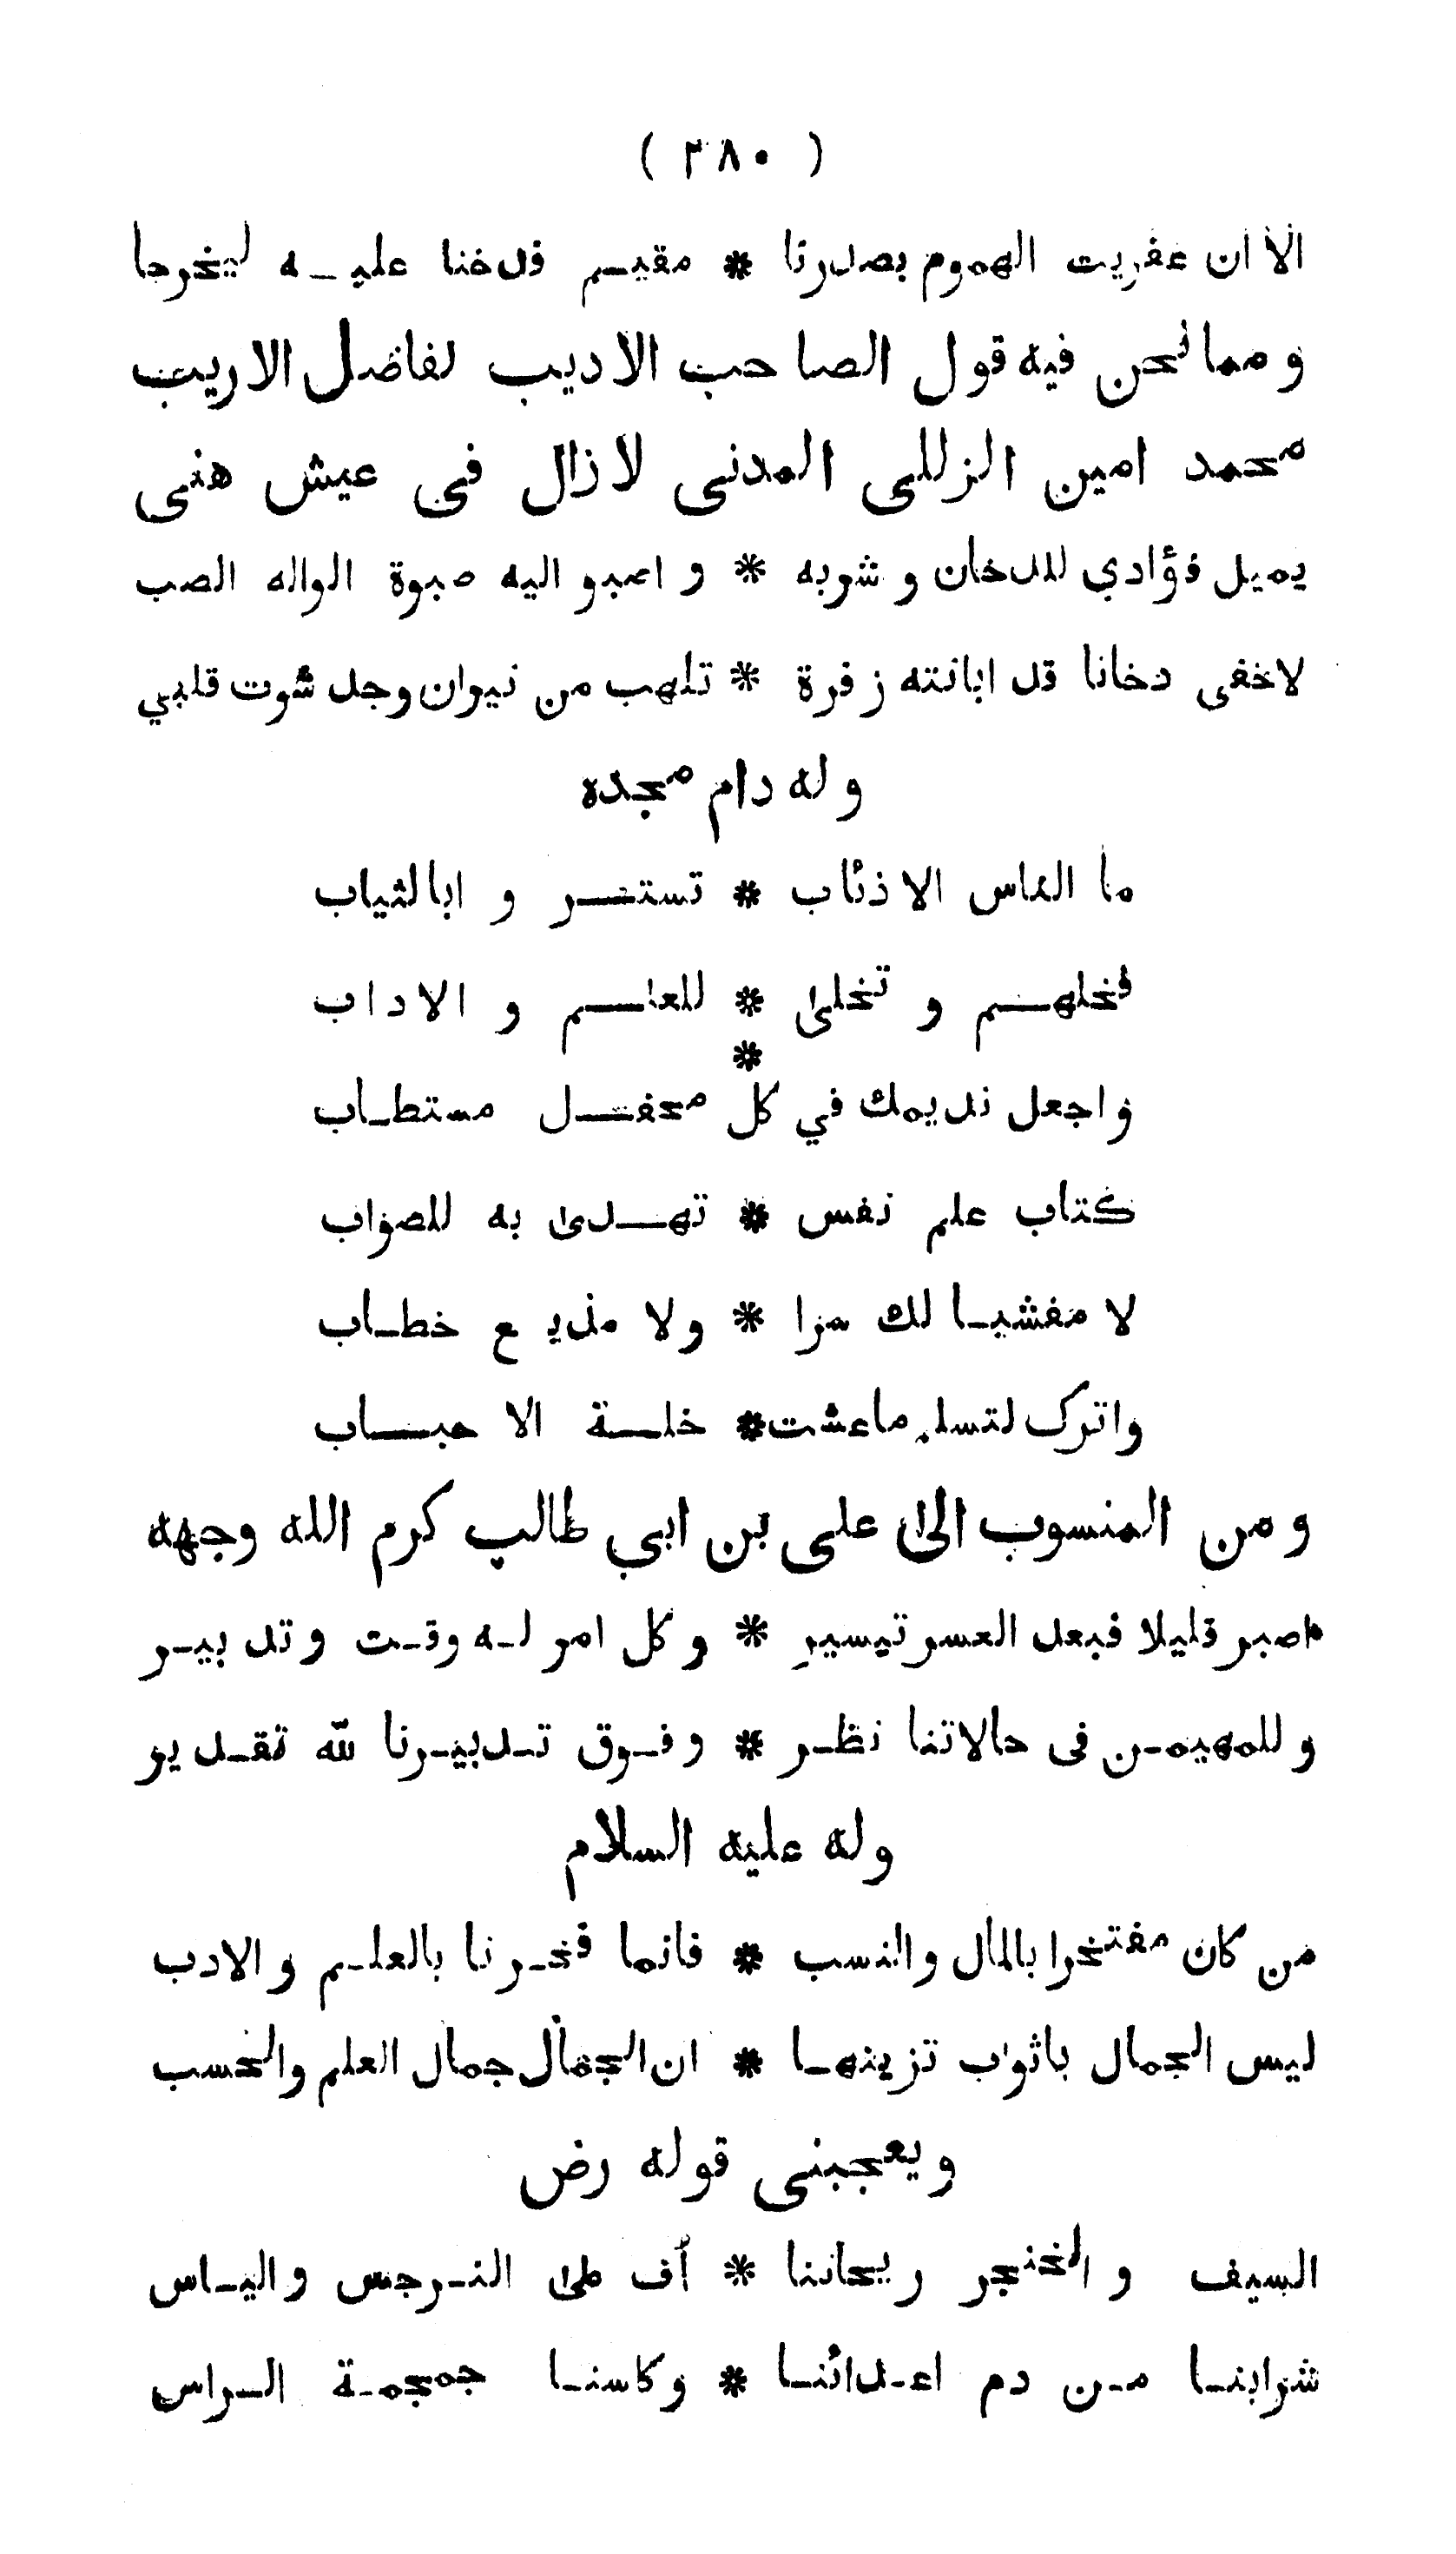 ( ٢٨٠ )
الا ان عفريت الهموم بصدرنا * مقيم فدخنا عليه ليخرجا
ومما نحن فيه قول الصاحب الاديب لفاضل الاريب
محمد امين الزللى المدنى لازال فى عيش هنى
يميل فؤادي للدخان وشربه * واصبو اليه صبوة الواله الصب
لاخفى دخانا قد ابانته زفرة * تلهب من نيران وجد شوت قلبي
وله دام مجده
ما الناس الا ذئاب * تستـر و ابالثياب
فخلهـم و تخلى * للعلـم و الاداب
*
واجعل نديمك في كل محفـل مستطـاب
كتاب علم نفس * تهـدى به للصواب
لا مفشيـا لك سرا * ولا مذيع خطـاب
واترك لتسلم ماعشت * خلـة الاحبـاب
ومن المنسوب الى على بن ابي طالب كرم الله وجهه
اصبر قليلا فبعد العسر تيسير * وكل امر لـه وقـت وتدبيـر
وللمهيمـن فى حالاتنا نظـر * وفـوق تـدبيـرنا لله تقـدير
وله عليه السلام
من كان مفتخرا بالمال والنسب * فانما فخـرنا بالعلـم والادب
ليس الجمال باثواب تزينهـا * ان الجمال جمال العلم والحسب
ويعجبنى قوله رض
السيف والخنجر ريحاننا * أف على النـرجس واليـاس
شرابنـا مـن دم اعـدائنـا * وكاسنـا جمجمـة الـراس